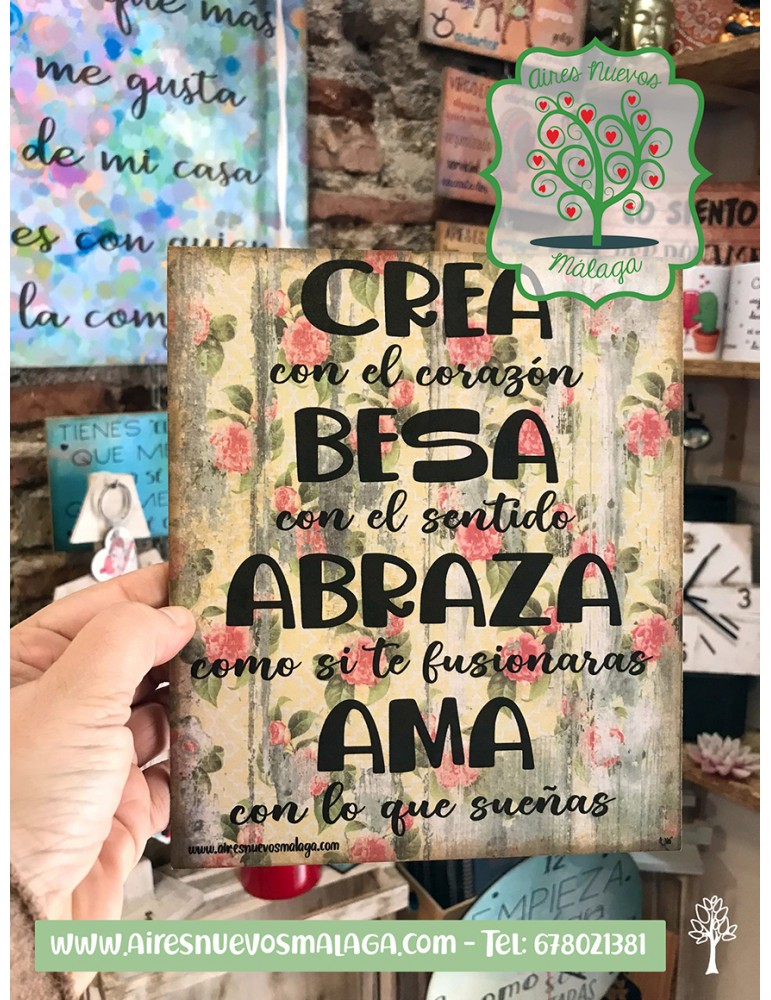 que más
me gusta
de mi casa
es con quien
la com
Aires Nuevos
Málaga
SIENTO
TIENES
QUE ME
CREA
con el corazón
BESA
con el sentido
ABRAZA
como si te fusionaras
AMA
con lo que sueñas
www.airesnuevosmalaga.com
3
12
EMPIEZA
como
www.AiresnuevosMALAGA.com - Tel: 678021381